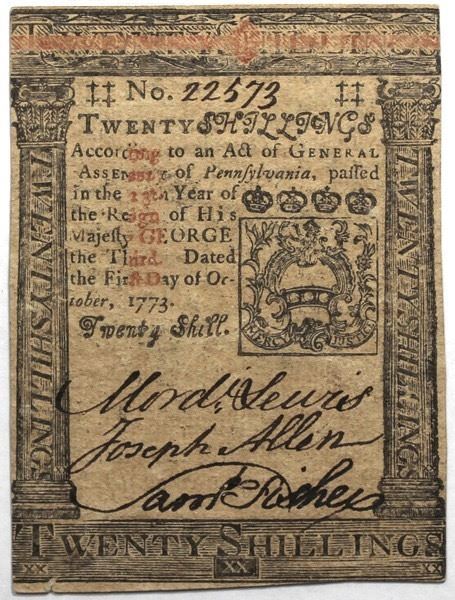 No. 22573
TWENTY SHILLINGS
According to an Act of GENERAL
ASSEMBLY of Pennſylvania, paſſed
in the 13th Year of
the Reign of His
Majeſty GEORGE
the Third. Dated
the Firſt Day of Oc-
tober, 1773.
Twenty Shill.
MERCY JUSTICE
TWENTY SHILLING.
TWENTY SHILLINGS
Mord. Lewis
Joseph Allen
Saml. Richey
TWENTY SHILLINGS
XX XX XX